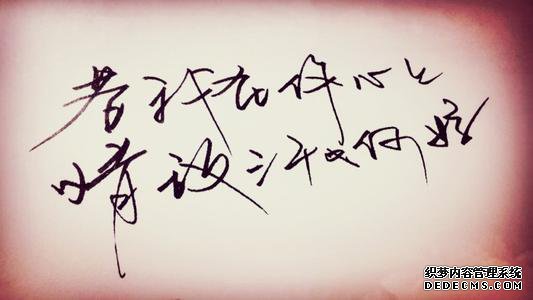 若我在你心上
情敌三千又何妨
织梦内容管理系统
DEDECMS.COM